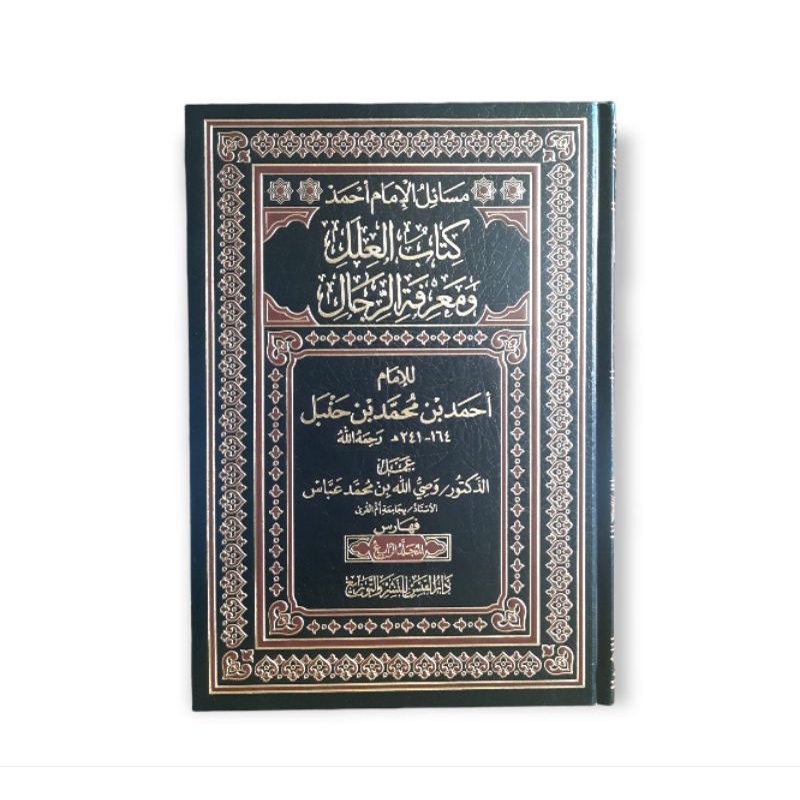 مسائل الإمام أحمد
كتاب العلل
ومعرفة الرجال
للإمام
أحمد بن محمد بن حنبل
١٦٤ - ٢٤١ هـ رحمه الله
عمل
الدكتور / وصي الله بن محمد عباس
الأستاذ / بجامعة أم القرى
فهارس
المجلد الرابع
دار القبس للنشر والتوزيع